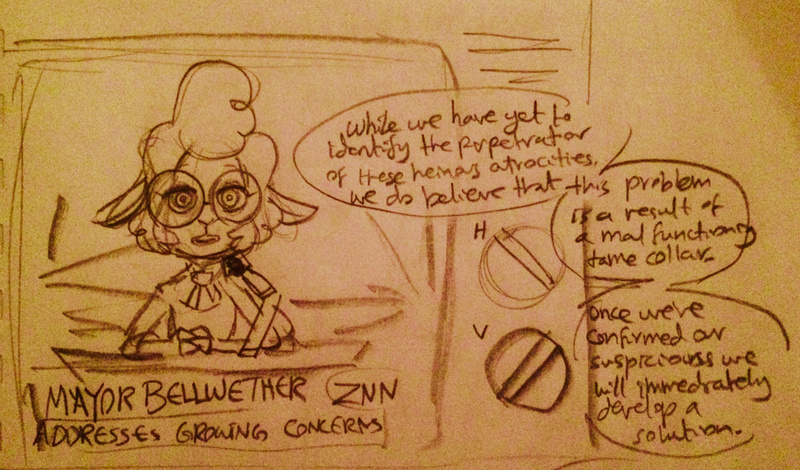 while we have yet to
identify the perpetrator
of these heinas atrocities,
we do believe that
this problem
is a result of
a mal functioning
tame collar.
H
V
once we've
confirmed our
suspicionss we
will immediately
develop a
solution.
MAYOR BELLWETHER ZNN
ADDRESSES GROWING CONCERNS